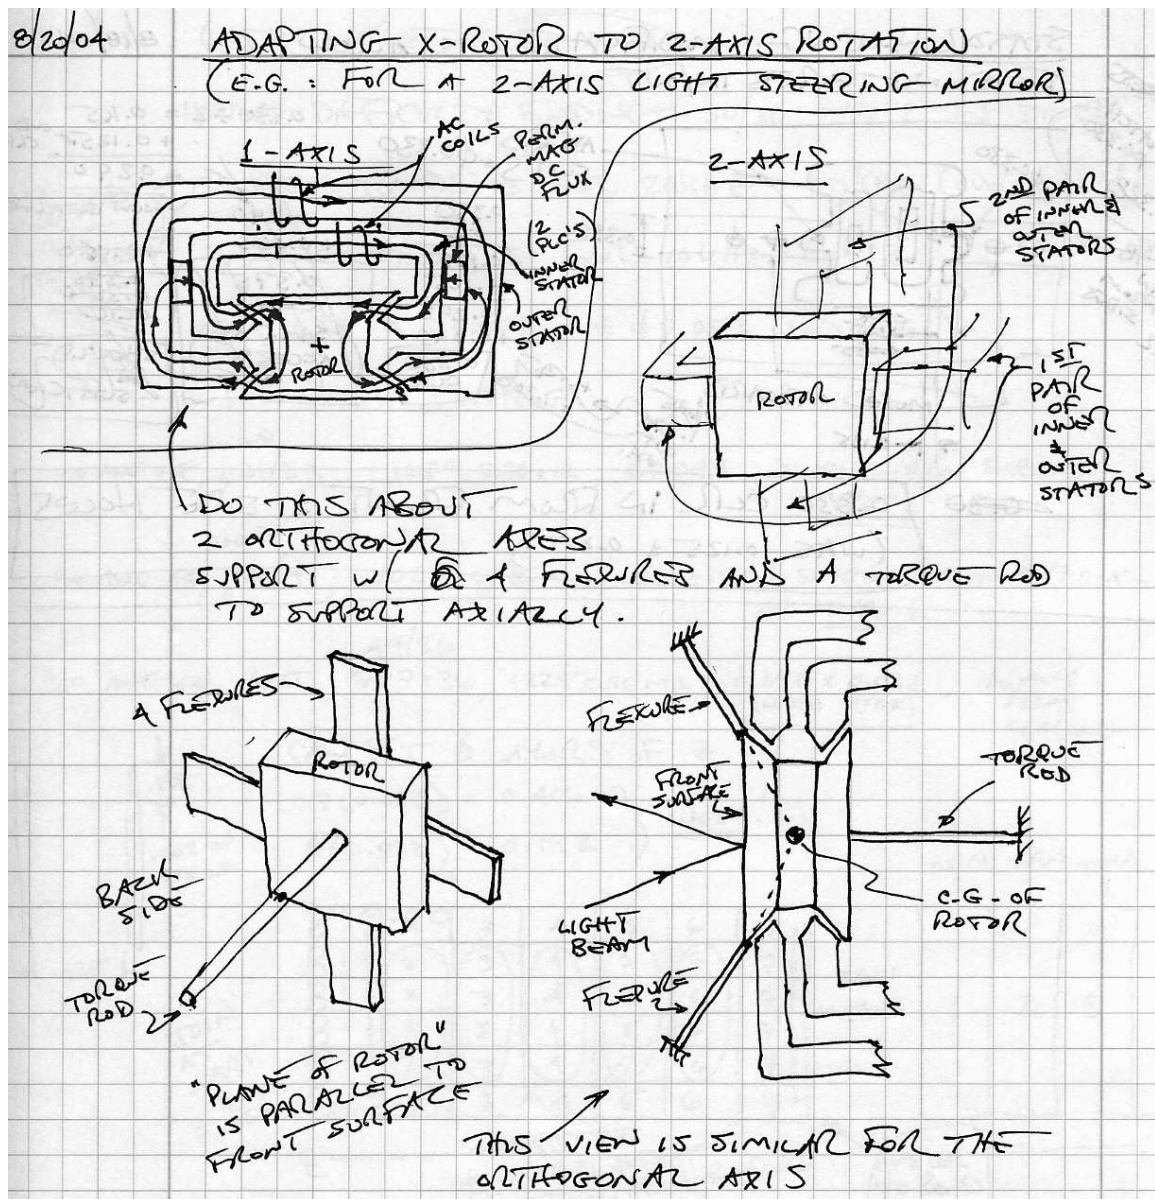 8/20/04
ADAPTING X-ROTOR TO 2-AXIS ROTATION
(E.G.: FOR A 2-AXIS LIGHT STEERING MIRROR)
1-AXIS
AC
COILS
PERM.
MAG
DC
FLUX
(2
PLC'S)
INNER
STATOR
OUTER
STATOR
+
ROTOR
2-AXIS
2ND PAIR
OF INNER &
OUTER
STATORS
ROTOR
1ST
PAIR
OF
INNER
&
OUTER
STATORS
DO THIS ABOUT
2 ORTHOGONAL AXES
SUPPORT W/ 4 FLEXURES AND A TORQUE ROD
TO SUPPORT AXIALLY.
4 FLEXURES
ROTOR
BACK
SIDE
TORQUE
ROD
"PLANE OF ROTOR"
IS PARALLEL TO
FRONT SURFACE
FLEXURE
FRONT
SURFACE
TORQUE
ROD
LIGHT
BEAM
C-G- OF
ROTOR
FLEXURE
THIS VIEW IS SIMILAR FOR THE
ORTHOGONAL AXIS